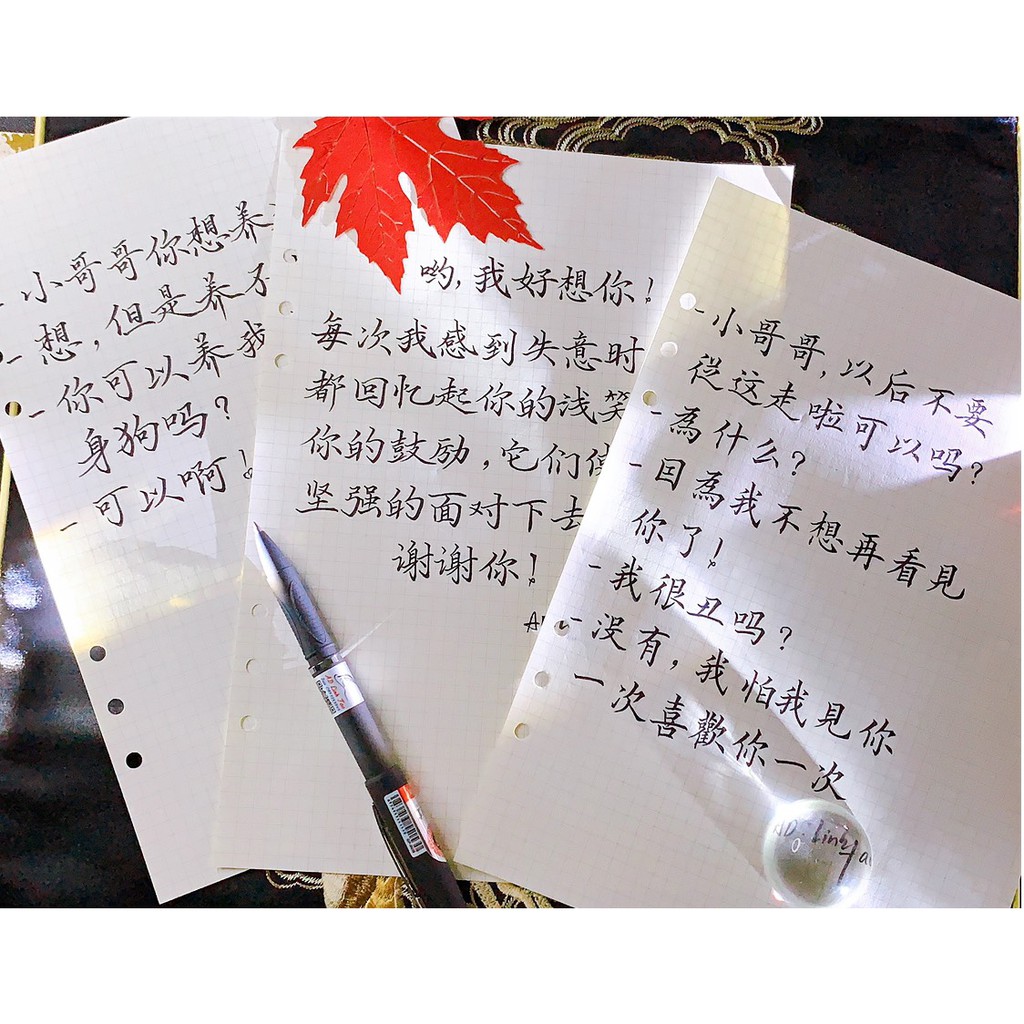 - 小哥哥你想养
- 想,但是养不
- 你可以养我
身狗吗?
- 可以啊!
哟,我好想你!
每次我感到失意时
都回忆起你的浅笑
你的鼓励,它们使
坚强的面对下去
谢谢你!
- 小哥哥,以后不要
從这走啦可以吗?
- 為什么?
- 因為我不想再看見
你了!
- 我很丑吗?
- 没有,我怕我見你
一次喜歡你一次
AD: Linh